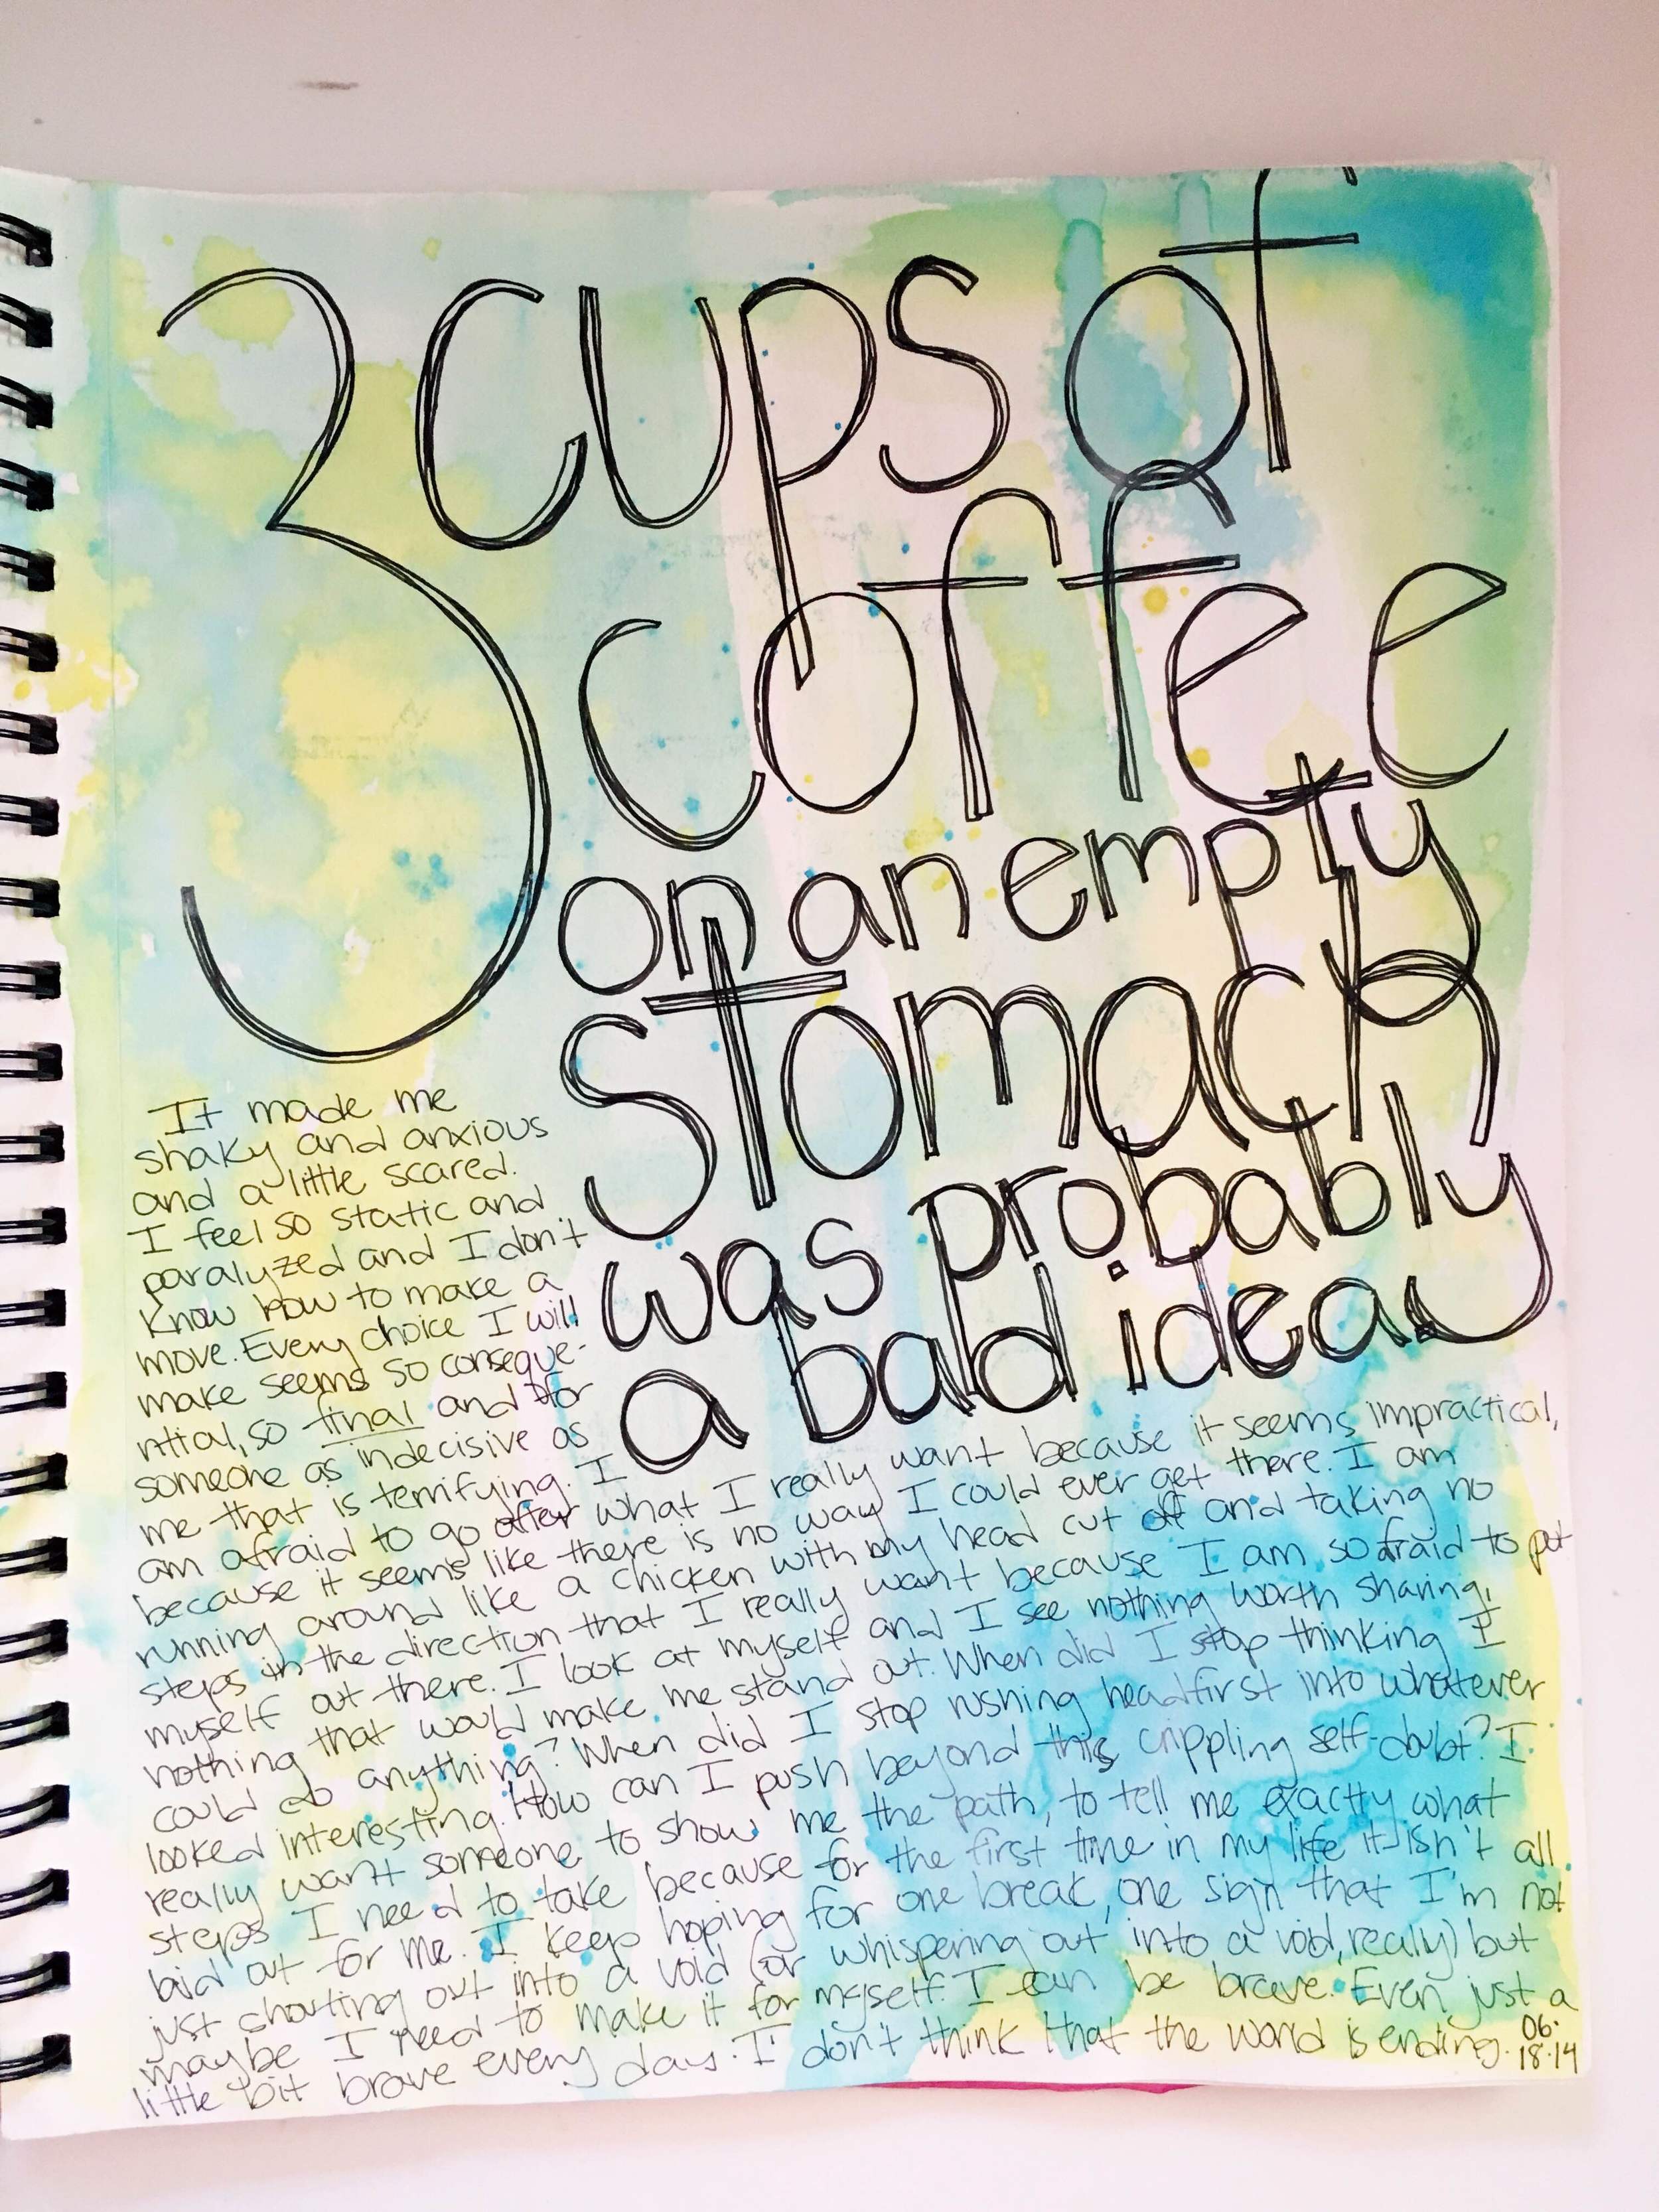 3 cups of
coffee
on an empty
stomach
was probably
a bad idea
It made me
shaky and anxious
and a little scared.
I feel so static and
paralyzed and I don't
know how to make a
move. Every choice I will
make seems so conseque-
ntial, so final and for
someone as indecisive as
me that is terrifying. I
am afraid to go after what I really want because it seems impractical,
because it seems like there is no way I could ever get there. I am
running around like a chicken with my head cut off and taking no
steps in the direction that I really want because I am so afraid to put
myself out there. I look at myself and I see nothing worth sharing,
nothing that would make me stand out. When did I stop thinking I
could do anything? When did I stop rushing headfirst into whatever
looked interesting. How can I push beyond this crippling self-doubt? I
really want someone to show me the path, to tell me exactly what
steps I need to take because for the first time in my life it isn't all
laid out for me. I keep hoping for one break, one sign that I'm not
just shouting out into a void (or whispering out into a void, really) but
maybe I need to make it for myself. I can be brave. Even just a
little bit brave every day. I don't think that the world is ending.
06.
18.14